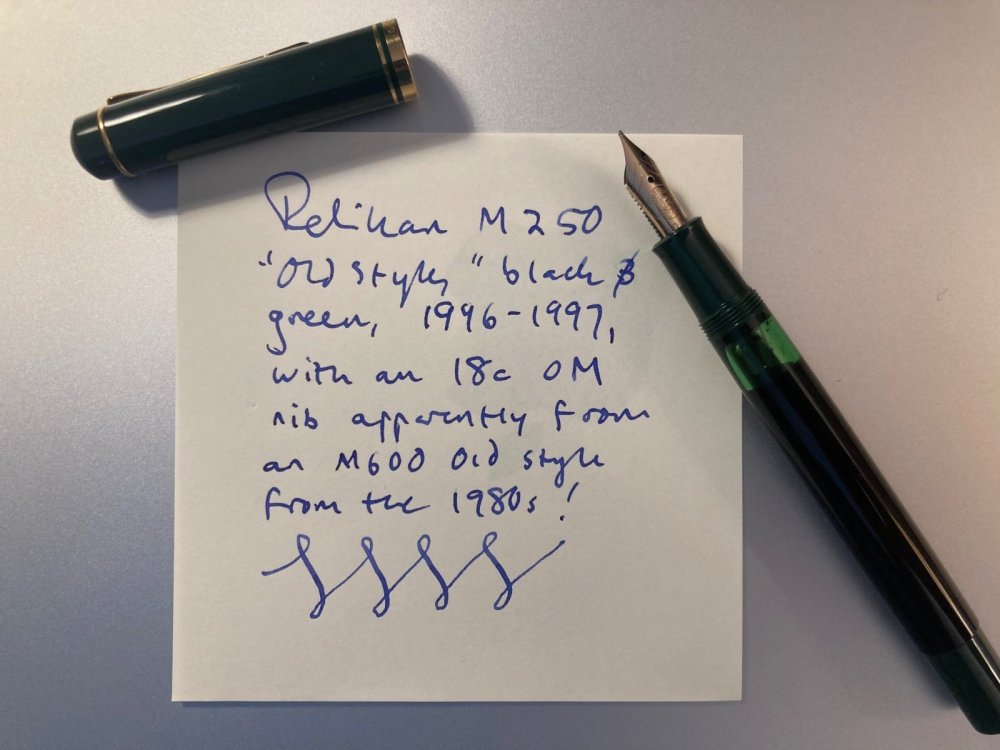 Pelikan M250
"Old Style" black &
green, 1996-1997,
with an 18c OM
nib apparently from
an M600 Old Style
from the 1980s!